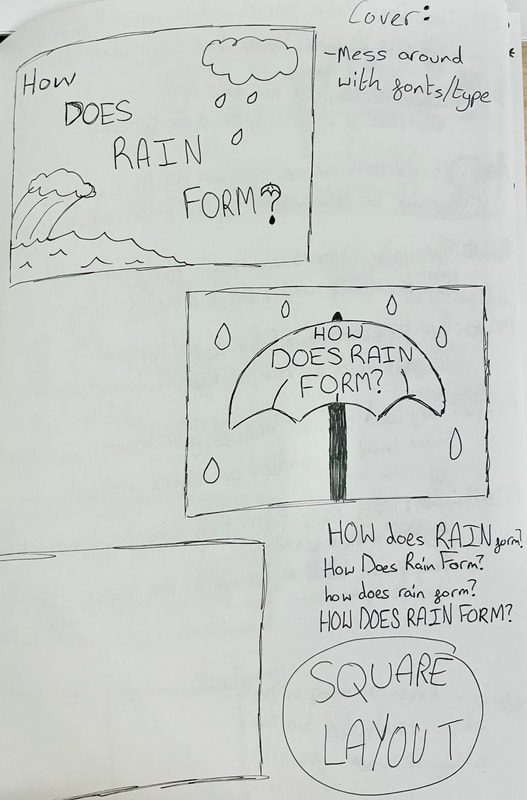 Cover:
-Mess around
with fonts/type
How
DOES
RAIN
FORM?
HOW
DOES RAIN
FORM?
HOW does RAIN form?
How Does Rain Form?
how does rain form?
HOW DOES RAIN FORM?
SQUARE
LAYOUT